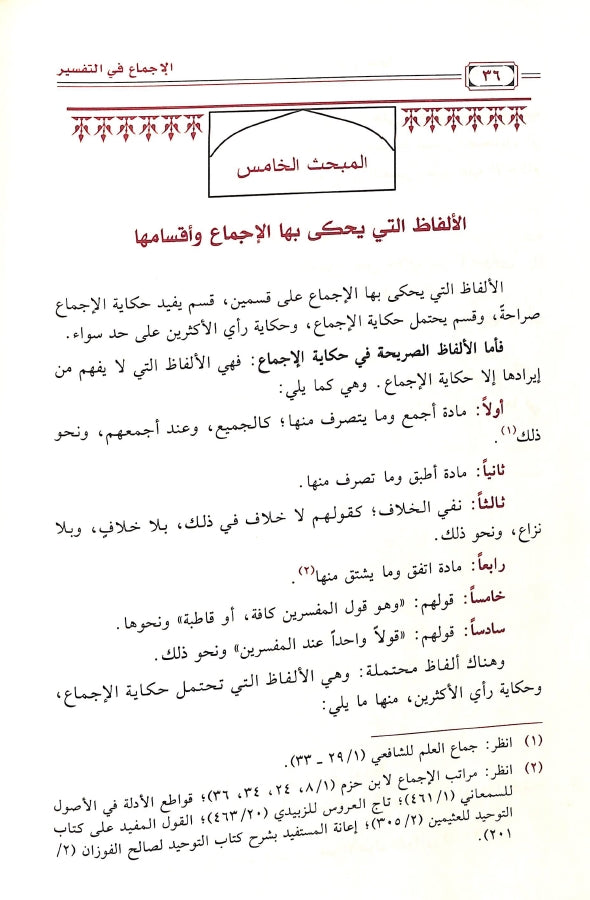 ٣٦
الإجماع في التفسير
المبحث الخامس
الألفاظ التي يحكى بها الإجماع وأقسامها
الألفاظ التي يحكى بها الإجماع على قسمين، قسم يفيد حكاية الإجماع
صراحةً، وقسم يحتمل حكاية الإجماع، وحكاية رأي الأكثرين على حد سواء.
فأما الألفاظ الصريحة في حكاية الإجماع: فهي الألفاظ التي لا يفهم من
إيرادها إلا حكاية الإجماع. وهي كما يلي:
أولاً: مادة أجمع وما يتصرف منها؛ كالجميع، وعند أجمعهم، ونحو
ذلك(١).
ثانياً: مادة أطبق وما تصرف منها.
ثالثاً: نفي الخلاف؛ كقولهم لا خلاف في ذلك، بلا خلافٍ، وبلا
نزاع، ونحو ذلك.
رابعاً: مادة اتفق وما يشتق منها(٢).
خامساً: قولهم: «وهو قول المفسرين كافة، أو قاطبة» ونحوها.
سادساً: قولهم: «قولاً واحداً عند المفسرين» ونحو ذلك.
وهناك ألفاظ محتملة: وهي الألفاظ التي تحتمل حكاية الإجماع،
وحكاية رأي الأكثرين، منها ما يلي:
(١) انظر: جماع العلم للشافعي (٢٩/١ ـ ٣٣).
(٢) انظر: مراتب الإجماع لابن حزم (٨/١، ٢٤، ٣٤، ٣٦)؛ قواطع الأدلة في الأصول
للسمعاني (٤٦١/١)؛ تاج العروس للزبيدي (٤٦٣/٢٠)؛ القول المفيد على كتاب
التوحيد للعثيمين (٣٠٥/٢)؛ إعانة المستفيد بشرح كتاب التوحيد لصالح الفوزان (٢/
٢٠١).